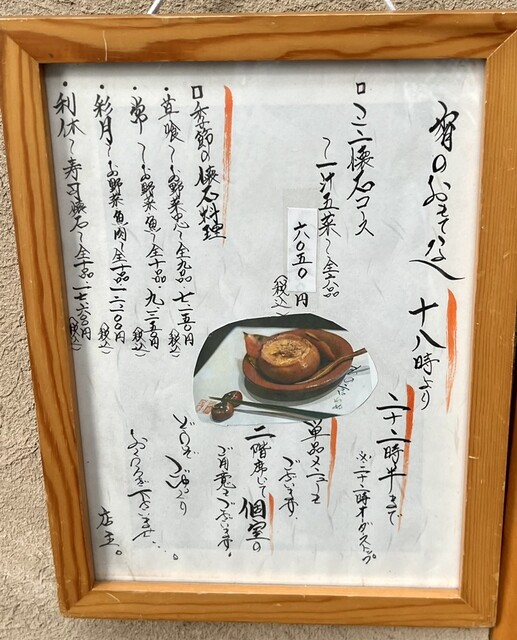 宵のおもてなし
十八時より
二十二時半まで
※二十二時オーダーストップ
ミニ懐石コース
〜一汁五菜〜全六品
六〇五〇円
(税込)
単品メニューも
ございます。
二階席にて個室の
ご用意もございます。
季節の懐石料理
・草喰〜お野菜中心〜全九品 七一五〇円
(税込)
・常〜お野菜・魚〜全十品 九三五〇円
(税込)
・彩月〜お野菜・魚・肉〜全十品 一二一〇〇円
(税込)
・利休〜寿司懐石〜全十品 一七六〇〇円
(税込)
どうぞ
ごゆっくり
おくつろぎ下さいませ…。
店主。